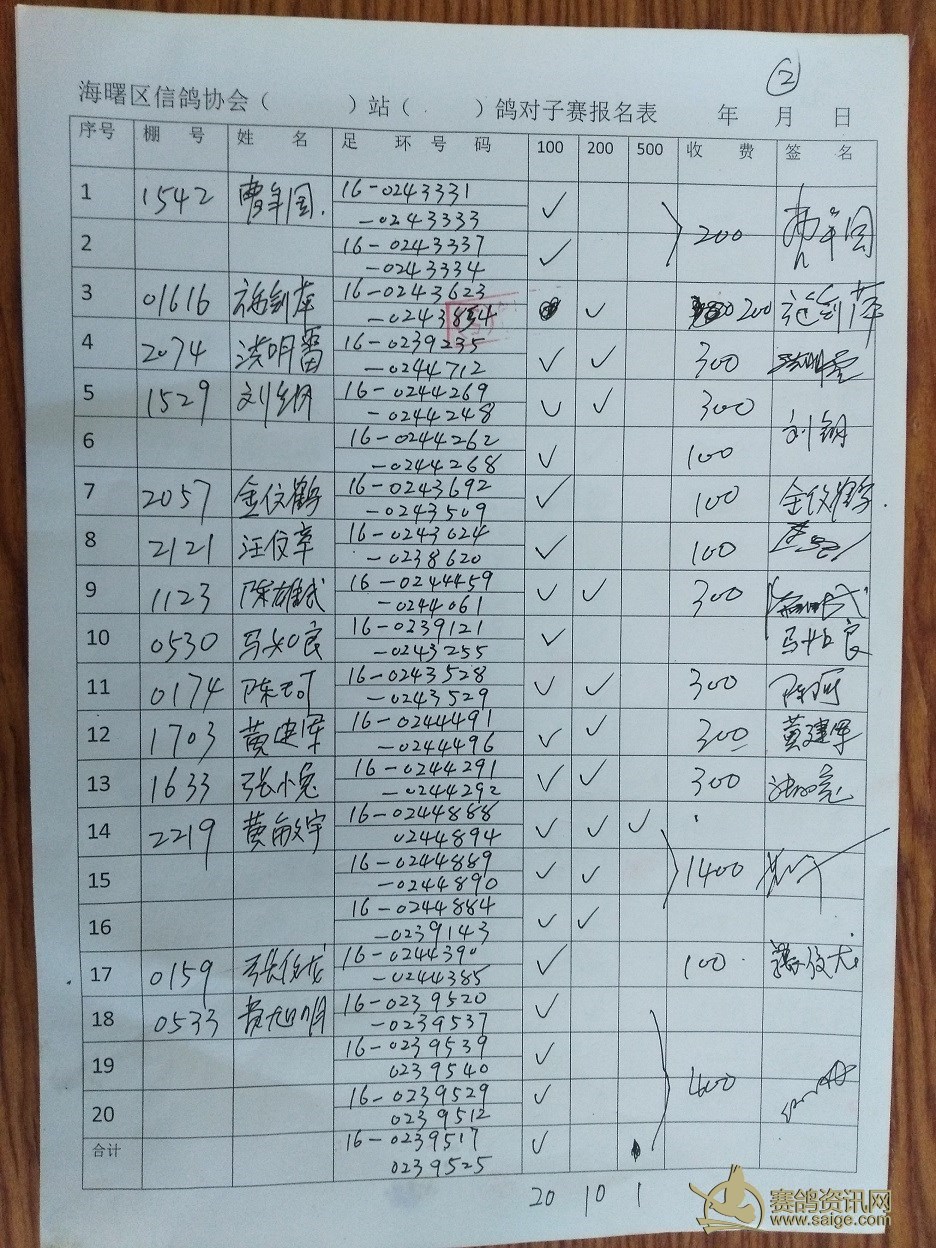 ②
海曙区信鸽协会（ ）站（ ）鸽对子赛报名表 年 月 日
序号 棚 号 姓 名 足 环 号 码 100 200 500 收 费 签 名
1 1542 曹年国. 16-0243331 ✓ 200 年国
-0243333
2 16-0243337 ✓
-0243334
3 01616 施剑萍 16-0243623 ✓ 200 施剑萍
-0243854
4 2074 洪明雷 16-0239235 ✓ ✓ 300
-0244712
5 1529 刘钢 16-0244269 ✓ ✓ 300 刘钢
-0244248
6 16-0244262 ✓ 100
-0244268
7 2057 金仪鹤 16-0243692 ✓ 100 金仪鹤
-0243509
8 2121 汪仪章 16-0243024 ✓ 100
-0238620
9 1123 陈雄武 16-0244459 ✓ ✓ 300
-0244061
10 0530 马如良 16-0239121 ✓ 马如良
-0243255
11 0174 陈可 16-0243528 ✓ ✓ 300
-0243529
12 1703 黄建军 16-0244491 ✓ ✓ 300 黄建军
-0244496
13 1633 张小亮 16-0244291 ✓ ✓ 300
-0244292
14 2219 黄敏宇 16-0244888 ✓ ✓ ✓ 1400
0244894
15 16-0244889 ✓ ✓
-0244890
16 16-0244884 ✓ ✓
-0239143
17 0159 张仪龙 16-0244390 ✓ 100 仪龙
-0244385
18 0533 黄旭明 16-0239520 ✓ 400
-0239537
19 16-0239539 ✓
0239540
20 16-0239529 ✓
0239512
合计 16-0239517 ✓
0239525
20 10 1
赛鸽资讯网
www.saige.com